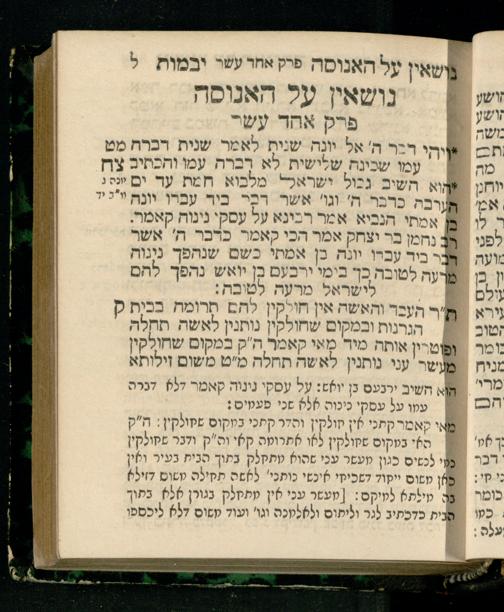 נושאין על האנוסה פרק אחד עשר יבמות ל
נושאין על האנוסה
פרק אחד עשר
ויהי דבר ה' אל יונה שנית לאמר שנית דברה מט
עמו שכינה שלישית לא דברה עמו והכתיב צח
הוא השיב גבול ישראל מלבוא חמת עד ים יונה ג
הערבת כדבר ה' וגו' אשר דבר ביד עבדו יונה מ"ב יד
בן אמתי הנביא אמר רבינא על עסקי נינוה קאמר.
רב נחמן בר יצחק אמר הכי קאמר כדבר ה' אשר
דבר ביד עבדו יונה בן אמתי כשם שנהפך נינוה
מרעה לטובה כך בימי ירבעם בן יואש נהפך להם
לישראל מרעה לטובה:
ת"ר העבד והאשה אין חולקין להם תרומה בבית ק
הגרנות ובמקום שחולקין נותנין לאשה תחלה
ופוטרין אותה מיד מאי קאמר ה"ק במקום שחולקין
מעשר עני נותנין לאשה תחלה מ"ט משום זילותא
הוא השיב ירבעם בן יואש: על עסקי נינוה קאמר דלא דברה
עמו על עסקי נינוה אלא שני פעמים:
מאי קאמר קתני אין חולקין והדר קתני במקום שחולקין: ה"ק
האי במקום שחולקין לאו אתרומה קאי וה"ק ודבר שחולקין
כמי לנשים כגון מעשר עני שהוא מתחלק בתוך הבית בעיר ואין
כאן משום ייחוד דשכיחי אינשי נותני' לאשה תחילה משום דזילא
בה מילתא למיקם: [מעשר עני אין מתחלק בגורן אלא בתוך
הבית כדכתיב לגר וליתום ולאלמנה וגו' ועוד משום דלא ליכספו